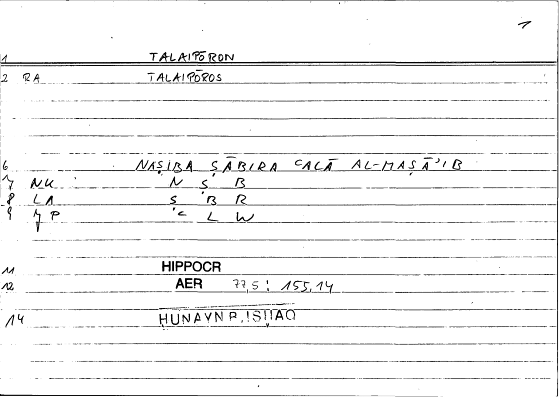 1
1 TALAIPŌRON
2 RA TALAIPŌROS
6 NAṢIBA ṢĀBIRA ʿALĀ AL-MAṢĀʾIB
7 NU N Ṣ B
8 LA Ṣ B R
9 YP ʿ L W
11 HIPPOCR
12 AER 77,5 : 155,14
14 ḤUNAYN B. ISḤAQ